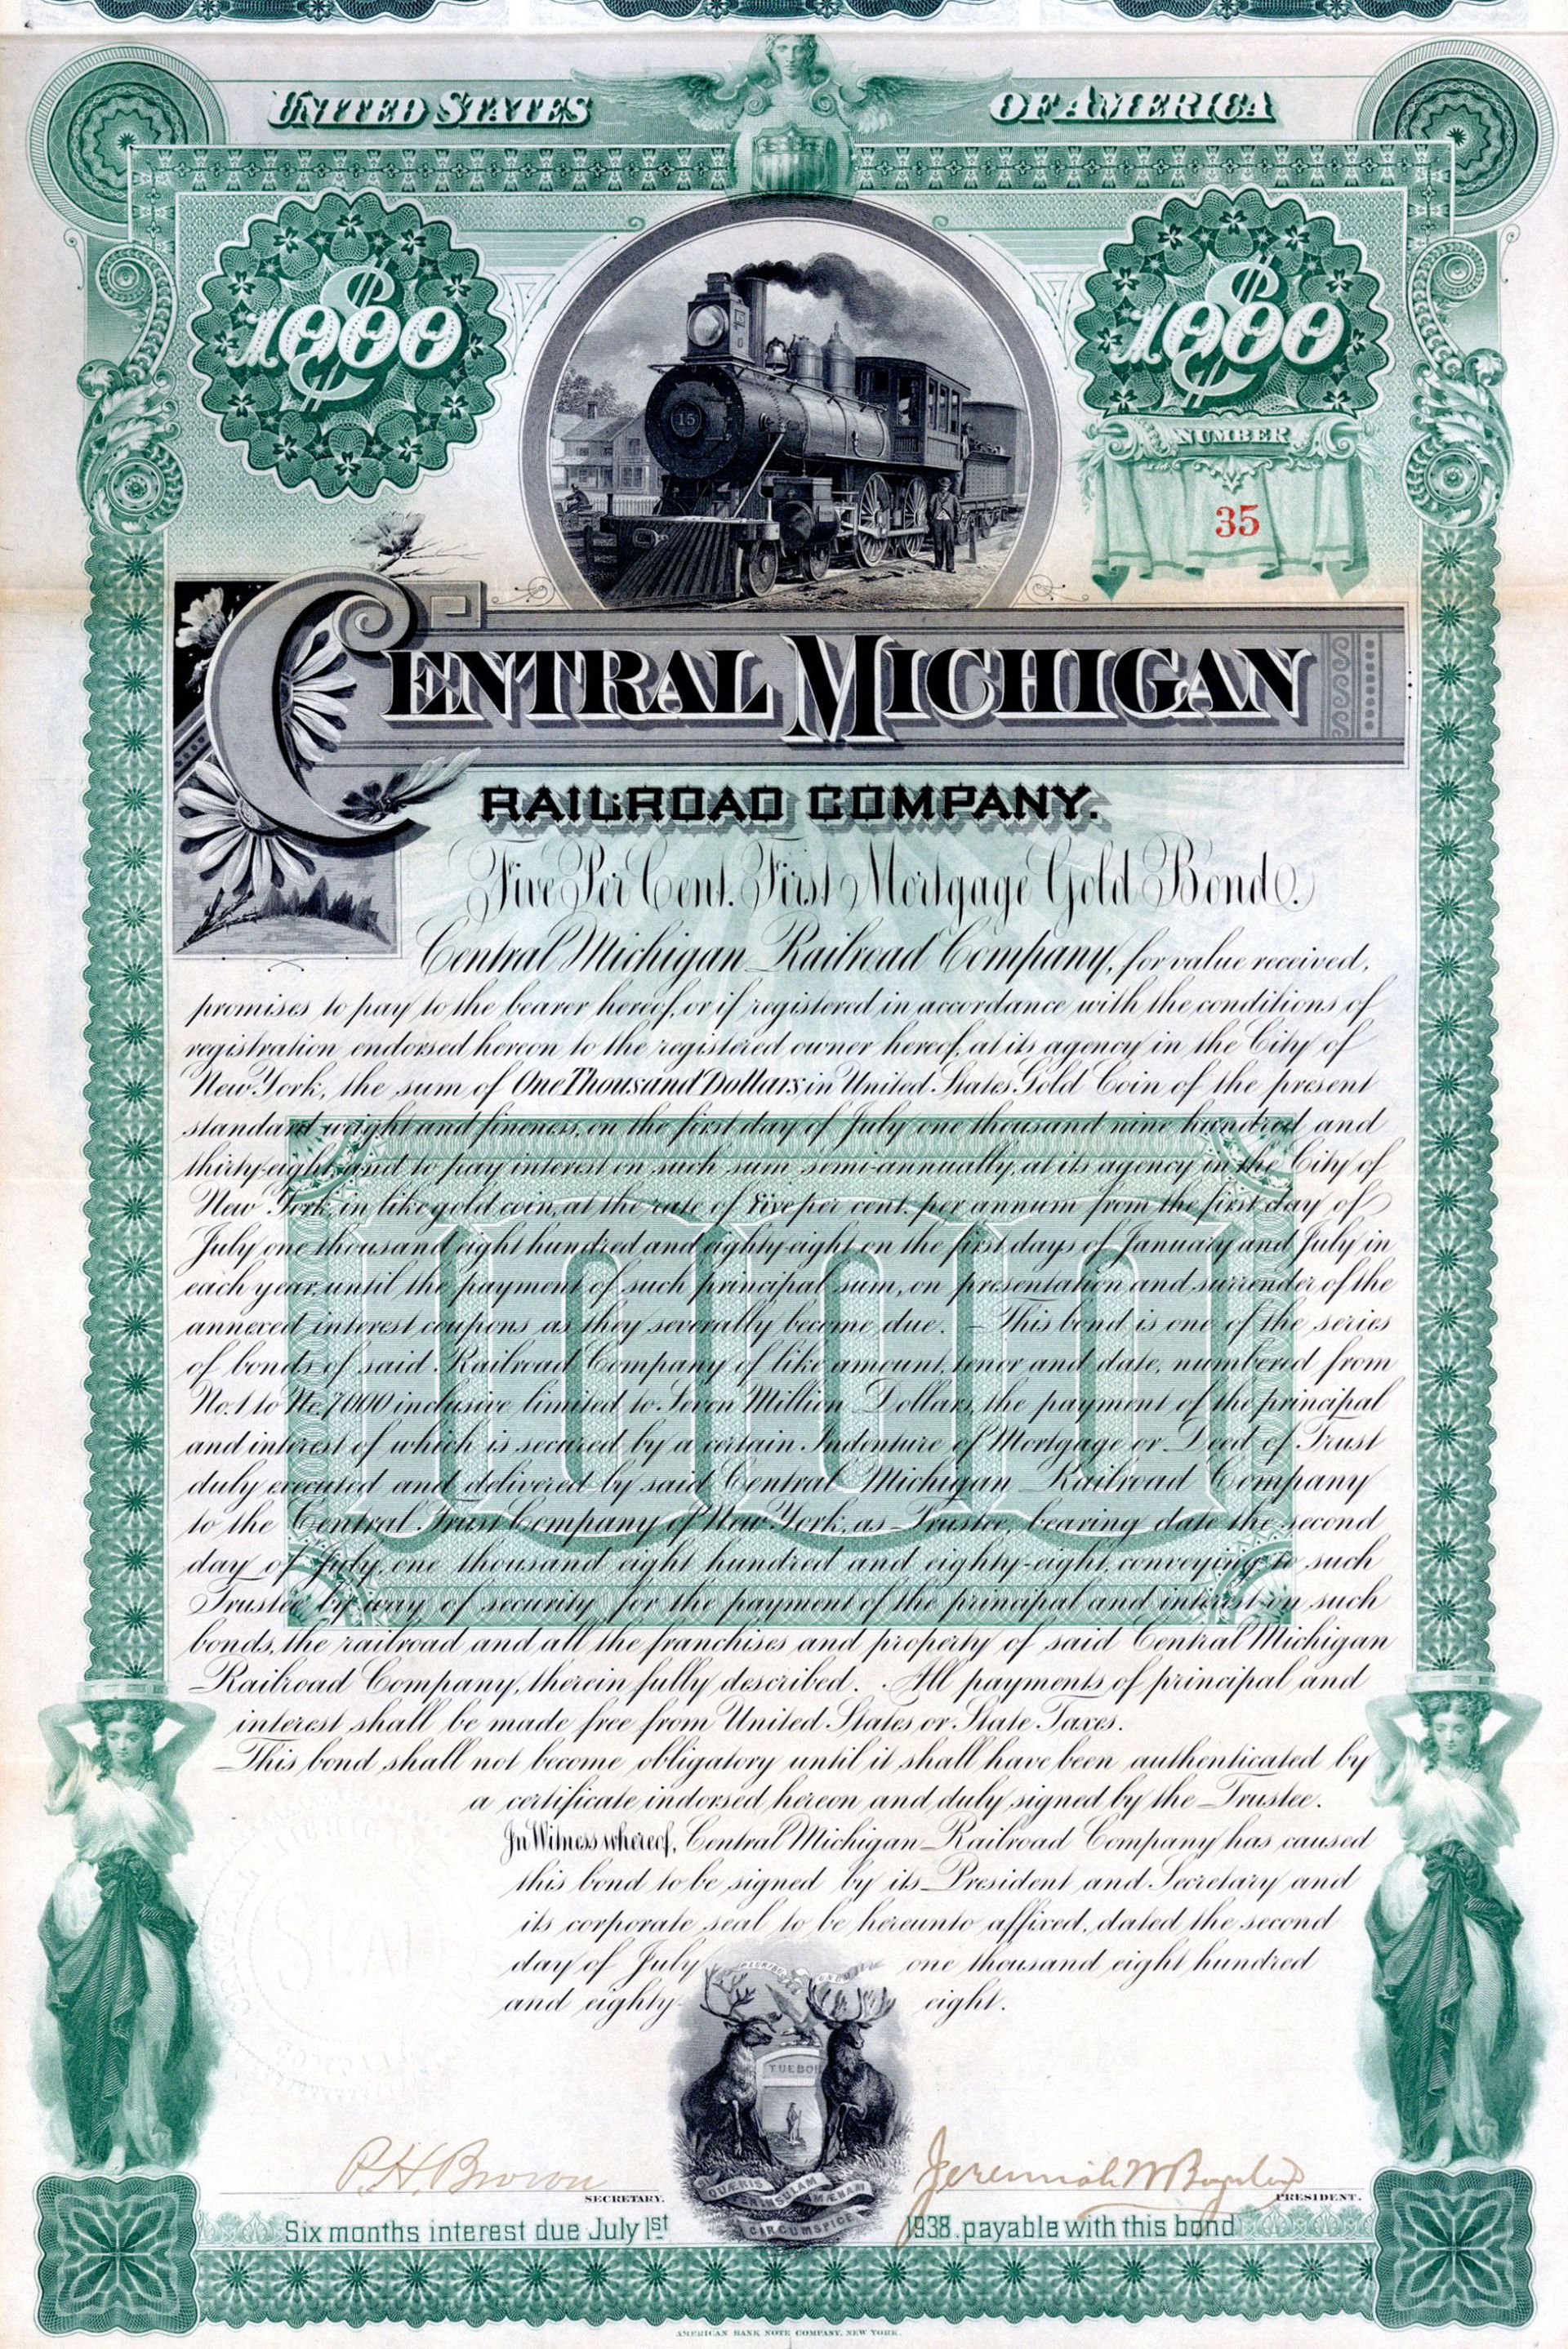 UNITED STATES OF AMERICA
$1000 $1000
15
NUMBER
35
CENTRAL MICHIGAN
RAILROAD COMPANY.
Five Per Cent. First Mortgage Gold Bond.
Central Michigan Railroad Company, for value received,
promises to pay to the bearer hereof, or if registered in accordance with the conditions of
registration endorsed hereon to the registered owner hereof, at its agency in the City of
New York, the sum of One Thousand Dollars in United States Gold Coin of the present
standard weight and fineness, on the first day of July one thousand nine hundred and
thirty-eight, and to pay interest on such sum semi-annually, at its agency in the City of
New York, in like gold coin, at the rate of Five per cent. per annum from the first day of
July one thousand eight hundred and eighty-eight on the first days of January and July in
each year, until the payment of such principal sum, on presentation and surrender of the
annexed interest coupons as they severally become due. – This bond is one of the series
of bonds of said Railroad Company of like amount, tenor and date, numbered from
No. 1 to No. 7000 inclusive limited to Seven Million Dollars, the payment of the principal
and interest of which is secured by a certain Indenture of Mortgage or Deed of Trust
duly executed and delivered by said Central Michigan Railroad Company
to the Central Trust Company of New York, as Trustee, bearing date the second
day of July, one thousand eight hundred and eighty-eight, conveying to such
Trustee by way of security for the payment of the principal and interest on such
bonds, the railroad and all the franchises and property of said Central Michigan
Railroad Company, therein fully described. All payments of principal and
interest shall be made free from United States or State Taxes.
This bond shall not become obligatory until it shall have been authenticated by
a certificate indorsed hereon and duly signed by the Trustee.
In Witness whereof, Central Michigan Railroad Company has caused
this bond to be signed by its President and Secretary and
its corporate seal to be hereunto affixed, dated the second
day of July one thousand eight hundred
and eighty- eight.
TUEBOR
P. H. Brown
SECRETARY.
QUÆRIS PENINSULAM AMŒNAM
CIRCUMSPICE
Jeremiah W
PRESIDENT.
Six months interest due July 1st 1938. payable with this bond
AMERICAN BANK NOTE COMPANY, NEW YORK.